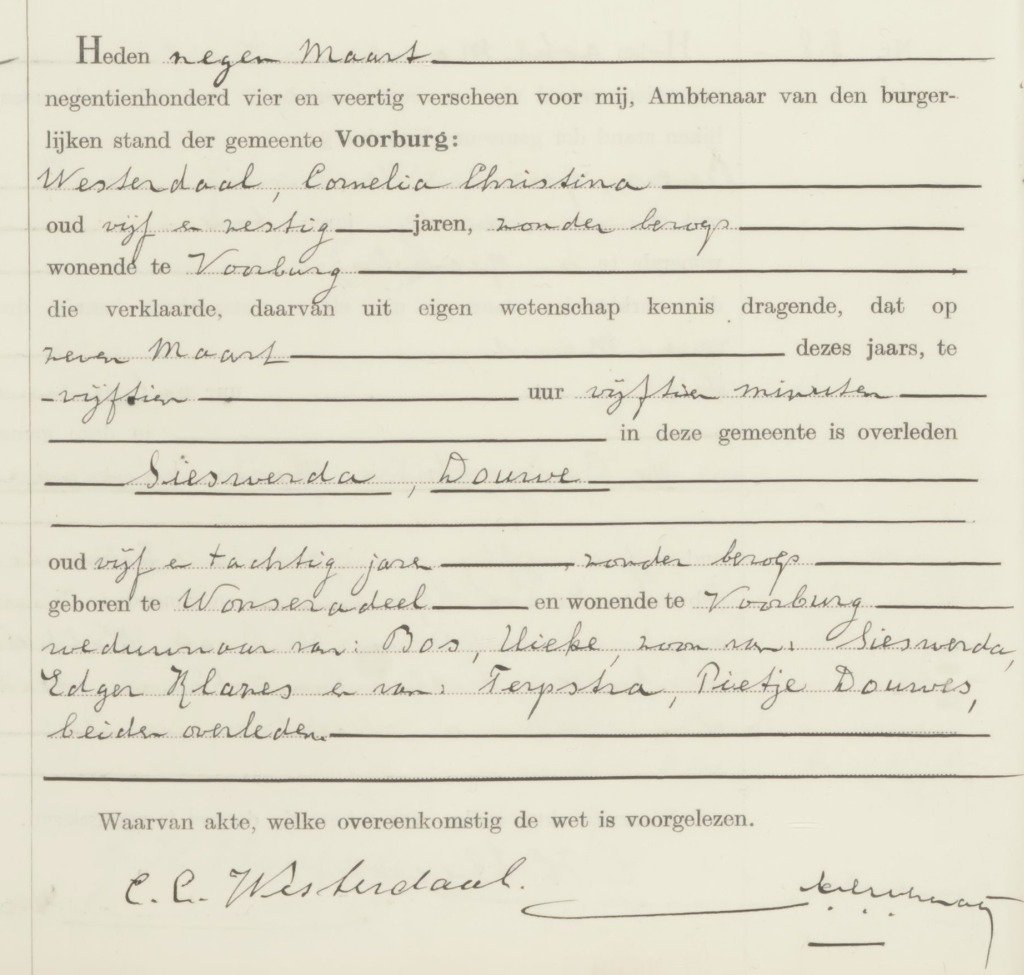 Heden negen Maart
negentienhonderd vier en veertig verscheen voor mij, Ambtenaar van den burger-
lijken stand der gemeente Voorburg:
Westerdaal, Cornelia Christina
oud vijf en zestig jaren, zonder beroep
wonende te Voorburg
die verklaarde, daarvan uit eigen wetenschap kennis dragende, dat op
zeven Maart dezes jaars, te
vijftien uur vijftien minuten
in deze gemeente is overleden
Sieswerda, Douwe
oud vijf en tachtig jaren zonder beroep
geboren te Wonseradeel en wonende te Voorburg
weduwnaar van: Bos, Uieke, zoon van: Sieswerda,
Edger Klazes en van: Terpstra, Pietje Douwes,
beiden overleden.
Waarvan akte, welke overeenkomstig de wet is voorgelezen.
C. C. Westerdaal.